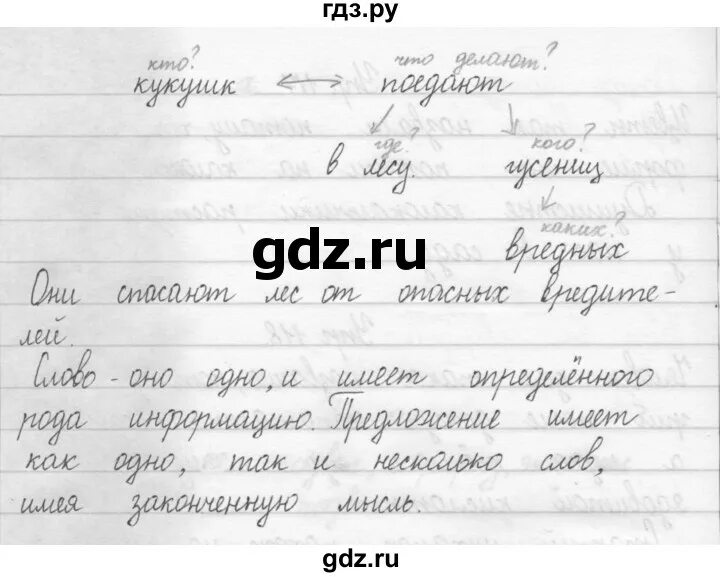 гдз.ру
кто? что делают?
кукушк ⟷ поедают
где? кого?
в лесу. гусениц
каких?
вредных
gdz.ru
Они спасают лес от опасных вредите-
лей.
Слово - оно одно, и имеет определённого
рода информацию. Предложение имеет
как одно, так и несколько слов,
имея законченную мысль.
gdz.ru